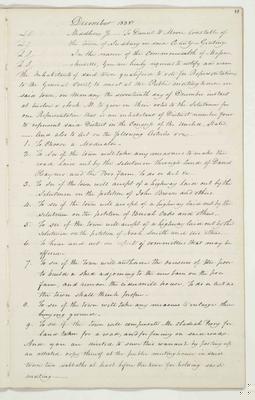 December 1838
L.S. Middlesex ss. To Daniel W. Moore Constable of
L.S. the town of Sudbury in said County — Greeting
L.S. In the name of the Commonwealth of Massa-
chusetts, You are hereby required to notify and warn
the inhabitants of said town qualified to vote for Representatives
to the General Court, to meet at the Public meeting house in
said town, on Monday the seventeenth day of December instant
at twelve o'clock M. to give in their votes to the Selectmen for
one Representative that is an inhabitant of District number four
to represent said District in the Congress of the United States
And also to act on the following Articles viz.
1. To Choose a Moderator.
2. To see if the town will take any measures to make the
road laid out by the Selectmen through land of David
Haynes and the Poor Farm to do or act &c.
3. To see if the town will accept of a highway laid out by the
Selectmen on the petition of John Brown and others.
4. To see if the town will accept of a highway laid out by the
selectmen on the petition of and others.
5. To see if the town will accept of a highway laid out to the
selectmen on the petition of Smith and six others.
6. To hear and act on report of committees that may be
offered.
7. To see if the town will authorise the overseers of the poor
to build a shed adjoining to the new barn on the poor
farm, and remove the house To do or act as
the town shall think proper.
8. To see if the town will take any measures to enlarge their
burying ground.
9. To see if the town will compensate for
land taken for a road, and for fencing on said road.
And you are directed to serve this warrant by posting up
an attested copy thereof at the public meeting house in said
town two sabbaths at least before the time for holding said
meeting